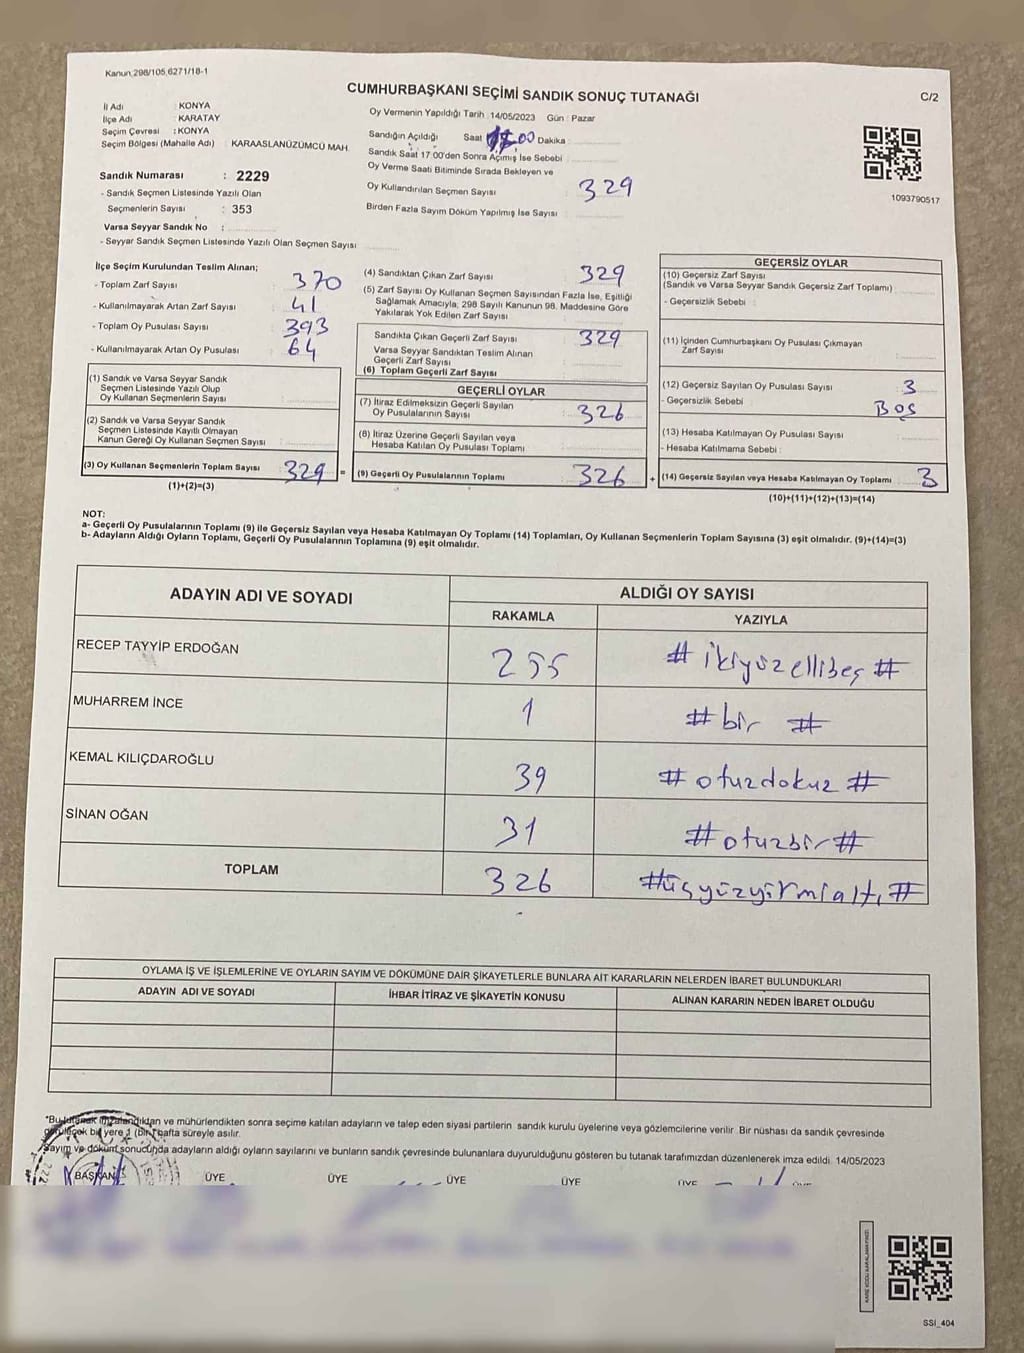 Kanun 298/105,6271/18-1
CUMHURBAŞKANI SEÇİMİ SANDIK SONUÇ TUTANAĞI
C/2
İl Adı : KONYA
İlçe Adı : KARATAY
Seçim Çevresi : KONYA
Seçim Bölgesi (Mahalle Adı) : KARAASLANÜZÜMCÜ MAH.
Sandık Numarası : 2229
- Sandık Seçmen Listesinde Yazılı Olan
Seçmenlerin Sayısı : 353
Varsa Seyyar Sandık No :
- Seyyar Sandık Seçmen Listesinde Yazılı Olan Seçmen Sayısı
Oy Vermenin Yapıldığı Tarih : 14/05/2023 Gün : Pazar
Sandığın Açıldığı Saat 17:00 Dakika :
Sandık Saat 17:00'den Sonra Açımış İse Sebebi
Oy Verme Saati Bitiminde Sırada Bekleyen ve
Oy Kullandırılan Seçmen Sayısı : 329
Birden Fazla Sayım Döküm Yapılmış İse Sayısı
1093790517
İlçe Seçim Kurulundan Teslim Alınan;
- Toplam Zarf Sayısı : 370
- Kullanılmayarak Artan Zarf Sayısı : 41
- Toplam Oy Pusulası Sayısı : 393
- Kullanılmayarak Artan Oy Pusulası : 64
(1) Sandık ve Varsa Seyyar Sandık
Seçmen Listesinde Yazılı Olup
Oy Kullanan Seçmenlerin Sayısı
(2) Sandık ve Varsa Seyyar Sandık
Seçmen Listesinde Kayıtlı Olmayan
Kanun Gereği Oy Kullanan Seçmen Sayısı
(3) Oy Kullanan Seçmenlerin Toplam Sayısı : 329 =
(1)+(2)=(3)
(4) Sandıktan Çıkan Zarf Sayısı : 329
(5) Zarf Sayısı Oy Kullanan Seçmen Sayısından Fazla İse, Eşitliği
Sağlamak Amacıyla, 298 Sayılı Kanunun 98. Maddesine Göre
Yakılarak Yok Edilen Zarf Sayısı
Sandıkta Çıkan Geçerli Zarf Sayısı : 329
Varsa Seyyar Sandıktan Teslim Alınan
Geçerli Zarf Sayısı
(6) Toplam Geçerli Zarf Sayısı
GEÇERLİ OYLAR
(7) İtiraz Edilmeksizin Geçerli Sayılan
Oy Pusulalarının Sayısı : 326
(8) İtiraz Üzerine Geçerli Sayılan veya
Hesaba Katılan Oy Pusulası Toplamı
(9) Geçerli Oy Pusulalarının Toplamı : 326 +
GEÇERSİZ OYLAR
(10) Geçersiz Zarf Sayısı
(Sandık ve Varsa Seyyar Sandık Geçersiz Zarf Toplamı)
- Geçersizlik Sebebi :
(11) İçinden Cumhurbaşkanı Oy Pusulası Çıkmayan
Zarf Sayısı
(12) Geçersiz Sayılan Oy Pusulası Sayısı : 3
- Geçersizlik Sebebi : Boş
(13) Hesaba Katılmayan Oy Pusulası Sayısı
- Hesaba Katılmama Sebebi :
(14) Geçersiz Sayılan veya Hesaba Katılmayan Oy Toplamı : 3
(10)+(11)+(12)+(13)=(14)
NOT:
a- Geçerli Oy Pusulalarının Toplamı (9) ile Geçersiz Sayılan veya Hesaba Katılmayan Oy Toplamı (14) Toplamları, Oy Kullanan Seçmenlerin Toplam Sayısına (3) eşit olmalıdır. (9)+(14)=(3)
b- Adayların Aldığı Oyların Toplamı, Geçerli Oy Pusulalarının Toplamına (9) eşit olmalıdır.
ADAYIN ADI VE SOYADI ALDIĞI OY SAYISI
RAKAMLA YAZIYLA
RECEP TAYYİP ERDOĞAN 255 # ikiyüzellibeş #
MUHARREM İNCE 1 # bir #
KEMAL KILIÇDAROĞLU 39 # otuzdokuz #
SİNAN OĞAN 31 # otuzbir #
TOPLAM 326 # üçyüzyirmialtı #
OYLAMA İŞ VE İŞLEMLERİNE VE OYLARIN SAYIM VE DÖKÜMÜNE DAİR ŞİKAYETLERLE BUNLARA AİT KARARLARIN NELERDEN İBARET BULUNDUKLARI
ADAYIN ADI VE SOYADI İHBAR İTİRAZ VE ŞİKAYETİN KONUSU ALINAN KARARIN NEDEN İBARET OLDUĞU
*Bu tutanak imzalandıktan ve mühürlendikten sonra seçime katılan adayların ve talep eden siyasi partilerin sandık kurulu üyelerine veya gözlemcilerine verilir. Bir nüshası da sandık çevresinde
görülecek bir yere 1 (bir) hafta süreyle asılır.
Sayım ve döküm sonucunda adayların aldığı oyların sayılarını ve bunların sandık çevresinde bulunanlara duyurulduğunu gösteren bu tutanak tarafımızdan düzenlenerek imza edildi. 14/05/2023
BAŞKAN ÜYE ÜYE ÜYE ÜYE ÜYE
SSİ_404